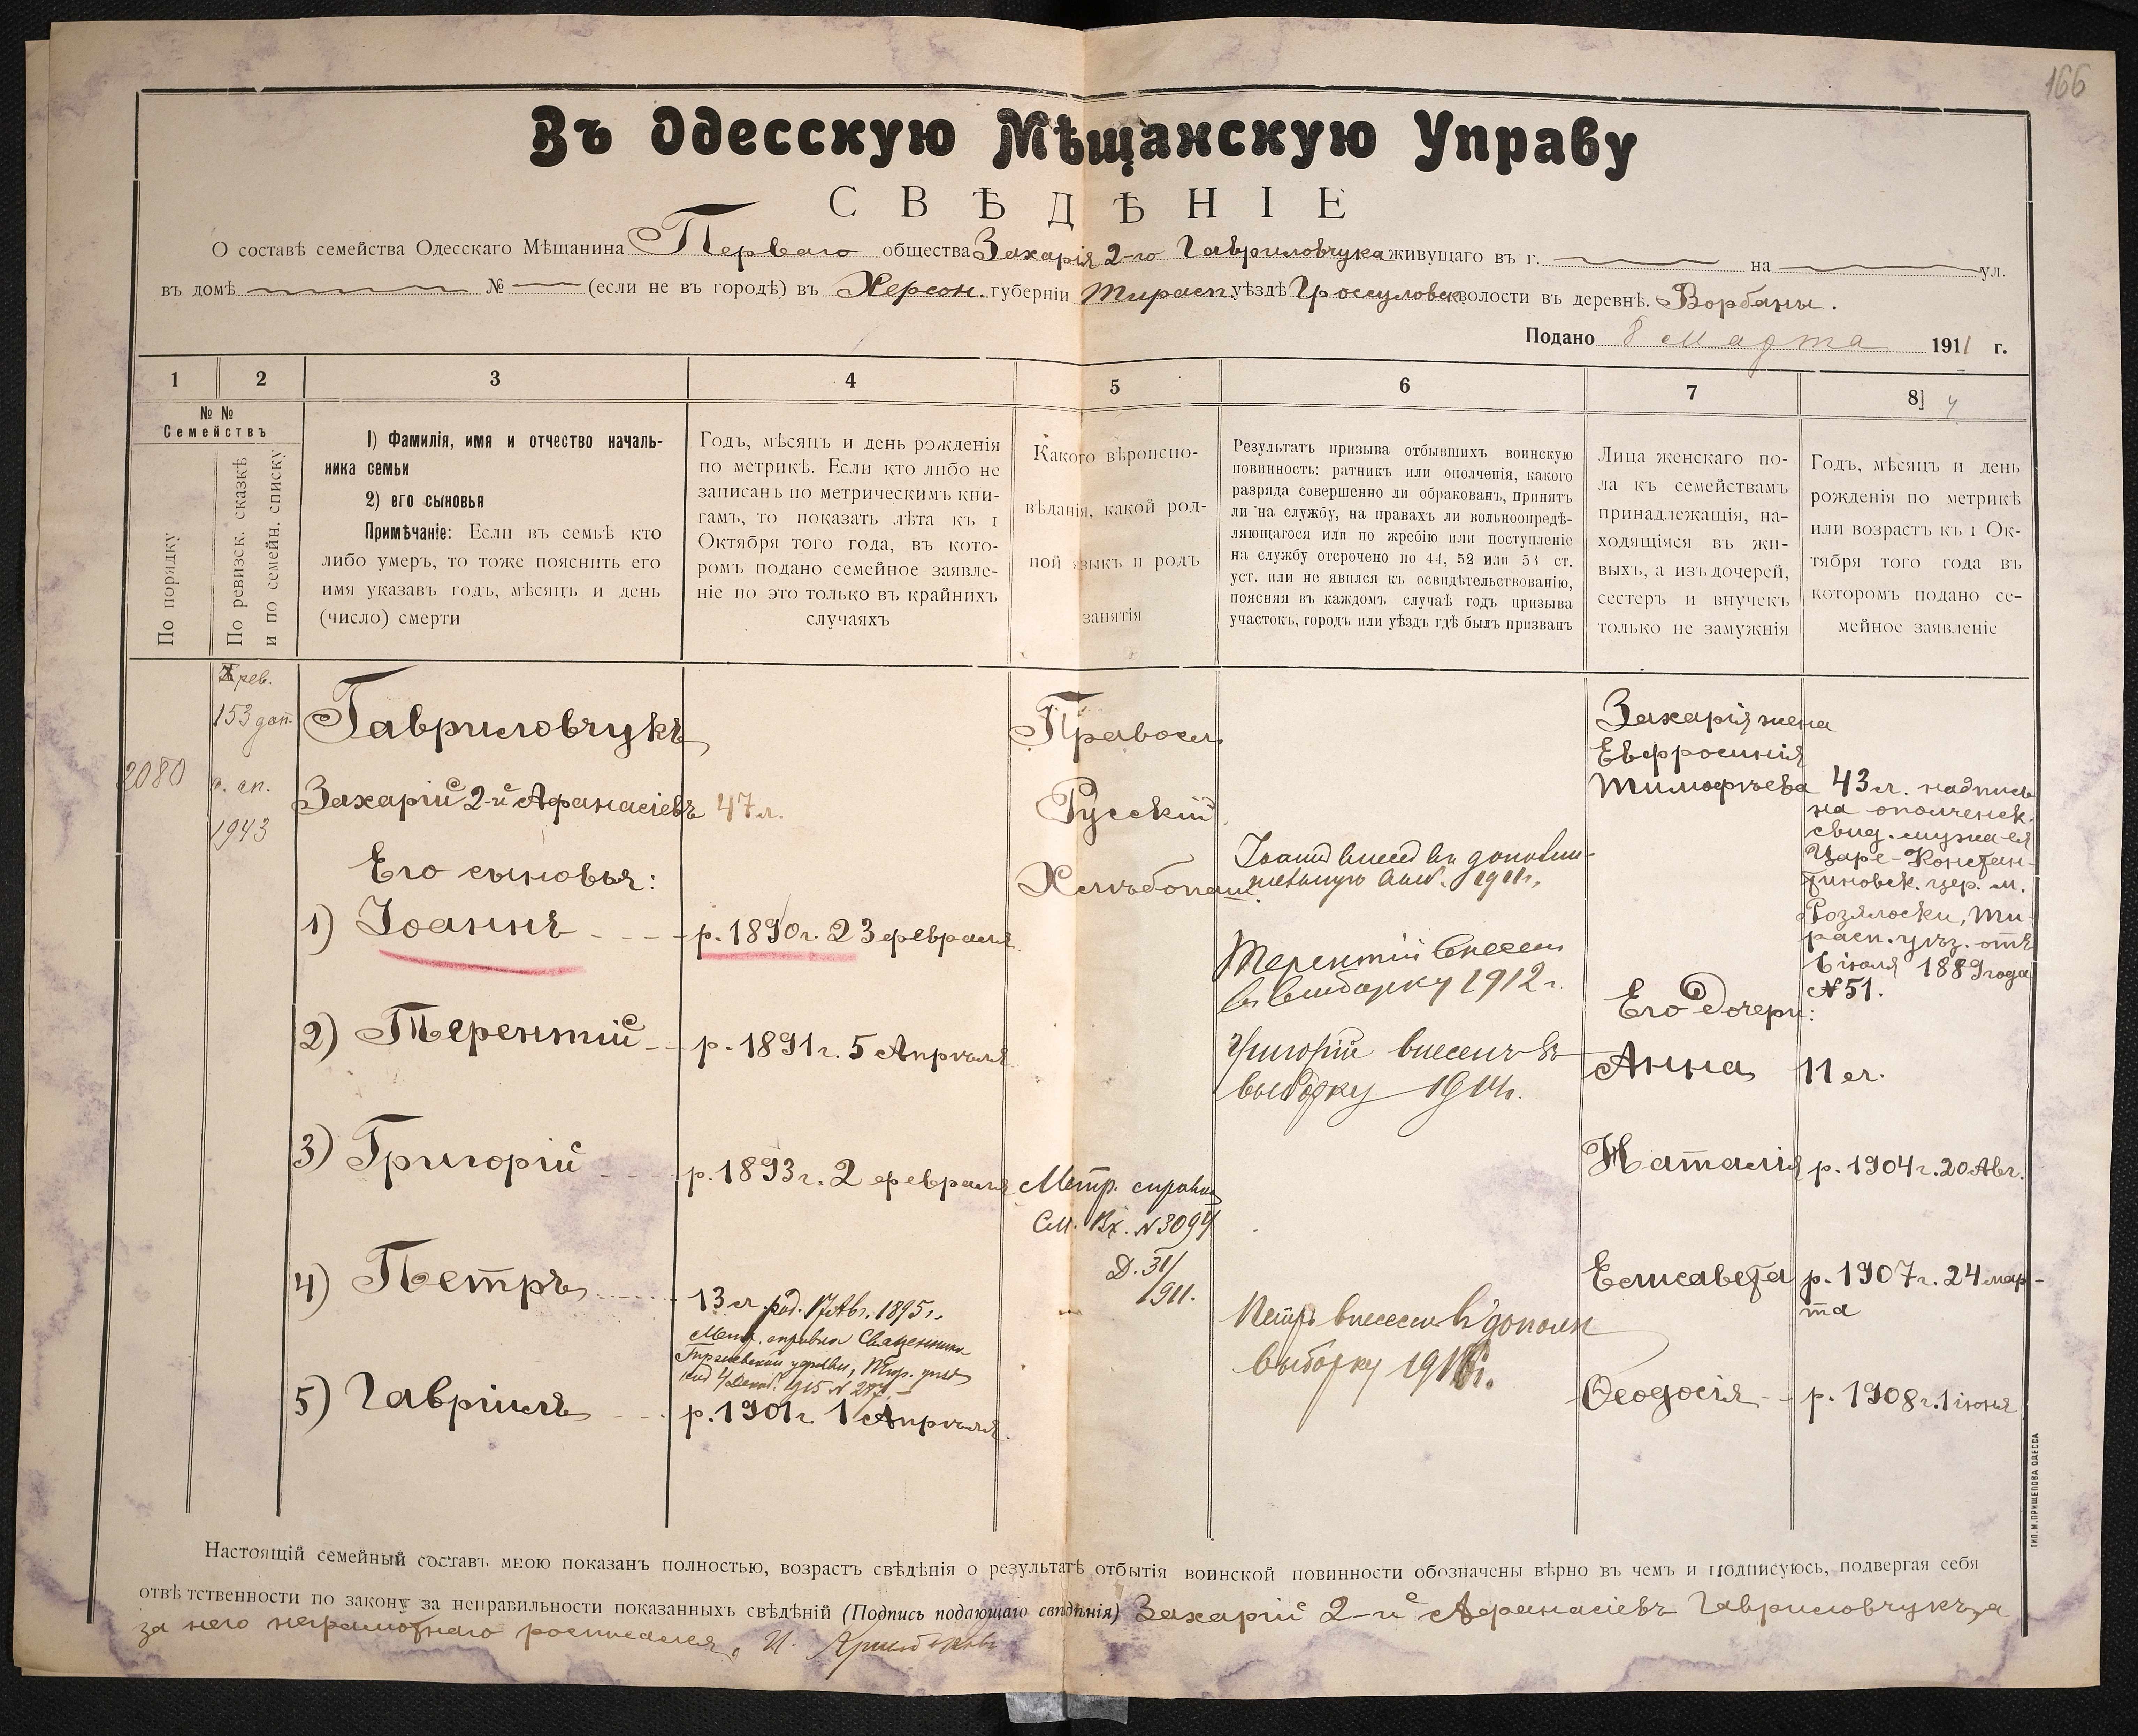 166
Въ Одесскую Мѣщанскую Управу
СВѢДѢНІЕ
О составѣ семейства Одесскаго Мѣщанина Перваго общества Захарія 2-го Гавриловчука живущаго въ г. на ул.
въ домѣ № (если не въ городѣ) въ Херсон. губерніи Тирасп. уѣздѣ Гроссуловск. волости въ деревнѣ. Ворбаны.
Подано 8 Марта 1911 г.
1 2 3 4 5 6 7 8
№ №
Семействъ
По порядку
По ревизск. сказкѣ
и по семейн. списку
1) Фамилія, имя и отчество началь-
ника семьи
2) его сыновья
Примѣчаніе: Если въ семьѣ кто
либо умеръ, то тоже пояснить его
имя указавъ годъ, мѣсяцъ и день
(число) смерти
Годъ, мѣсяцъ и день рожденія
по метрикѣ. Если кто либо не
записанъ по метрическимъ кни-
гамъ, то показать лѣта къ 1
Октября того года, въ кото-
ромъ подано семейное заявле-
ніе но это только въ крайнихъ
случаяхъ
Какого вѣроиспо-
вѣданія, какой род-
ной языкъ и родъ
занятія
Результатъ призыва отбывшихъ воинскую
повинность: ратникъ или ополченія, какого
разряда совершенно ли обракованъ, принятъ
ли на службу, на правахъ ли вольноопредѣ-
ляющагося или по жребію или поступленіе
на службу отсрочено по 44, 52 или 53 ст.
уст. или не явился къ освидѣтельствованію,
поясняя въ каждомъ случаѣ годъ призыва
участокъ, городъ или уѣздъ гдѣ былъ призванъ
Лица женскаго по-
ла къ семействамъ
принадлежащія, на-
ходящіяся въ жи-
выхъ, а изъ дочерей,
сестеръ и внучекъ
только не замужнія
Годъ, мѣсяцъ и день
рожденія по метрикѣ
или возрастъ къ 1 Ок-
тября того года въ
которомъ подано се-
мейное заявленіе
2080
X рев.
153 доп.
с. сп.
1943
Гавриловчукъ
Захарій 2-й Афанасіевъ 47 л.
Его сыновья:
1) Іоаннъ р. 1890 г. 23 февраля
2) Терентій р. 1891 г. 5 Апрѣля
3) Григорій р. 1893 г. 2 февраля
4) Петръ 13 л. род. 17 Авг. 1895 г.
Метр. справка Священника
церкви, Тир. уѣзд
1915 N
5) Гавріилъ р. 1901 г. 1 Апрѣля
Правосл.
Русскій
Хлѣбопаш.
Метр. справка
См. Вх. N 3094
Д. 31/
1911.
Іоаннъ внесенъ въ дополни-
тельную выб. 1911 г.
Терентій внесен
въ выборку 1912 г.
Григорій внесенъ въ
выборку 1914 г.
Петръ внесенъ в дополн
выборку 1916 г.
Захарія жена
Евфросинія
Тимофѣева
43 л. надпись
на ополченск.
свид. мужа ея
Царе-Констан-
тиновск. цер. м.
Розяловки, Ти-
расп. уѣз. отъ
6 іюля 1889 года
N 51.
Его дочери:
Анна 11 л.
Наталія р. 1904 г. 20 Авг.
Елисавета р. 1907 г. 24 мар-
та
Ѳеодосія р. 1908 г. 1 іюня
ТИП. М. ПРИЩЕПОВА ОДЕССА
Настоящій семейный составъ мною показанъ полностью, возрастъ свѣдѣнія о результатѣ отбытія воинской повинности обозначены вѣрно въ чемъ и подписуюсь, подвергая себя
отвѣтственности по закону за неправильности показанныхъ свѣдѣній (Подпись подающаго свѣдѣнія) Захарій 2-й Афанасіевъ Гавриловчукъ, а
за него неграмотнаго росписался, И.